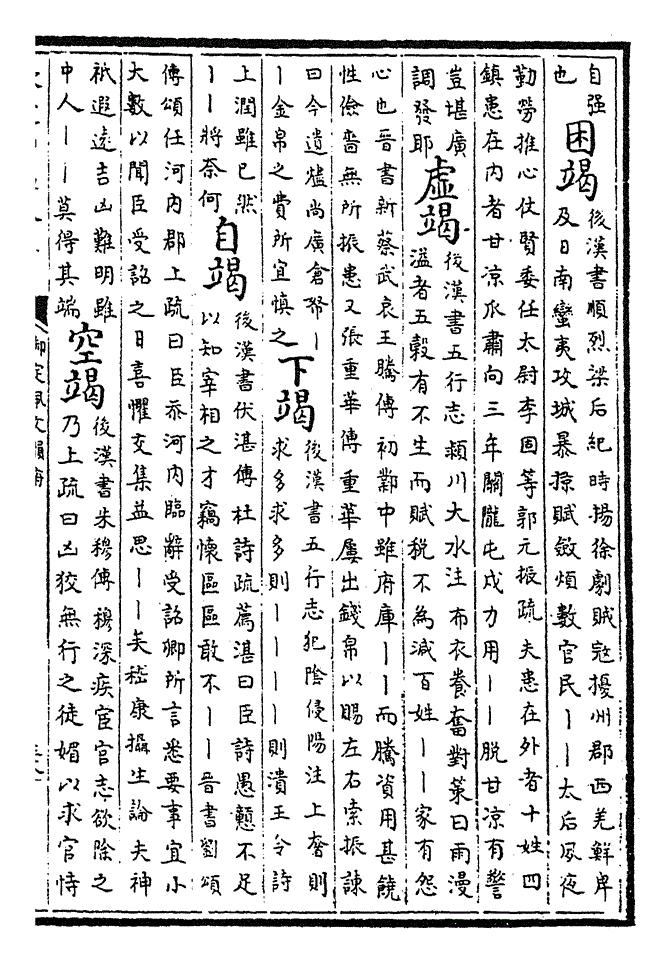 自强
也
困竭
後漢書順烈梁后紀時揚徐劇賊寇擾州郡西羌鮮卑
及日南蠻夷攻城暴掠賦斂煩數官民丨丨太后夙夜
勤勞推心仗賢委任太尉李固等郭元振疏夫患在外者十姓四
鎮患在內者甘凉瓜肅向三年關隴屯戍力用丨丨脫甘凉有警
豈堪廣
調發耶
虛竭
後漢書五行志潁川大水注布衣養奮對策曰雨漫
溢者五穀有不生而賦稅不為減百姓丨丨家有怨
心也晉書新蔡武哀王騰傳初鄴中雖府庫丨丨而騰資用甚饒
性儉嗇無所振惠又張重華傳重華屢出錢帛以賜左右索振諫
曰今遺燼尚廣倉帑丨
丨金帛之費所宜慎之
下竭
後漢書五行志犯陰侵陽注上奢則
求多求多則丨丨丨丨則潰王令詩
上潤雖已然
丨丨將奈何
自竭
後漢書伏湛傳杜詩疏薦湛曰臣詩愚戇不足
以知宰相之才竊懷區區敢不丨丨晉書劉頌
傳頌任河內郡上疏曰臣忝河內臨辭受詔卿所言悉要事宜小
大數以聞臣受詔之日喜懼交集益思丨丨矣嵇康攝生論夫神
祇遐遠吉凶難明雖
中人丨丨莫得其端
空竭
後漢書朱穆傳穆深疾宦官志欲除之
乃上疏曰凶狡無行之徒媚以求官恃
御定佩文韻府